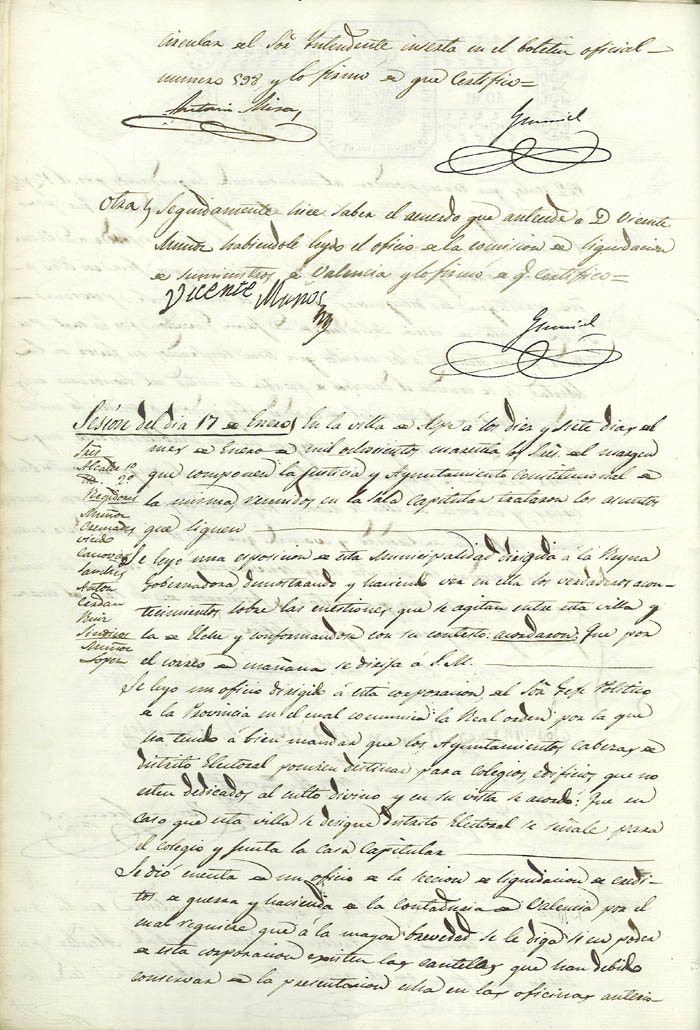 circular del Sor. Yntendente inserta en el boletin oficial
numero 598 y lo firmó de que Certifico=
Antonio Mira
Gumiel
Otra Seguidamente hice saber el acuerdo que antecede a D Vicente
Muñoz habiendole leydo el oficio de la comision de liquidacion
de suministros de Valencia y lo firmó de q. Certifico=
Vicente Muños
Gumiel
Sesión del dia 17 de Enero En la villa de Aspe á los diez y siete dias del
mes de Enero de mil ochocientos cuarenta los Sres del margen
que componen la Justicia y Ayuntamiento Constitucional de
la misma, reunidos en la sala Capitular trataron los asuntos
que siguen
Sres
Alcalde 1º
Do 2º
Regidores
Muñoz
Cremades
Vicedo
Canovas
Sanchez
Anton
Cerdan
Ruiz
Sindicos
Muñoz
Lopez
Se leyo una esposicion de esta Municipalidad dirigida á la Reyna
Gobernadora demostrando y haciendo ver en ella los verdaderos acon-
tecimientos sobre las cuestiones que se agitan entre esta villa y
la de Elche y conformandose con su contesto: acordaron: Que por
el correo de mañana se dirija á S.M.
Se leyo un oficio dirigido á esta corporacion del Sor Gefe Politico
de la Provincia en el cual comunica la Real orden por la que
ha tenido á bien mandar que los Ayuntamientos cabezas de
distrito Electoral pueden destinar para colegios, edificios que no
esten dedicados al culto divino y en su vista se acordó: Que en
caso que esta villa se designe distrito Electoral se señale para
el colegio y Junta la casa Capitular
Se dió cuenta de un oficio de la seccion de liquidacion de credi-
tos de guerra y hacienda de la Contaduria de Valencia por el
cual requiere que á la mayor brevedad se le diga si en poder
de esta corporacion existen las cautelas que han debido
conservar de la presentacion echa en las oficinas anterio-